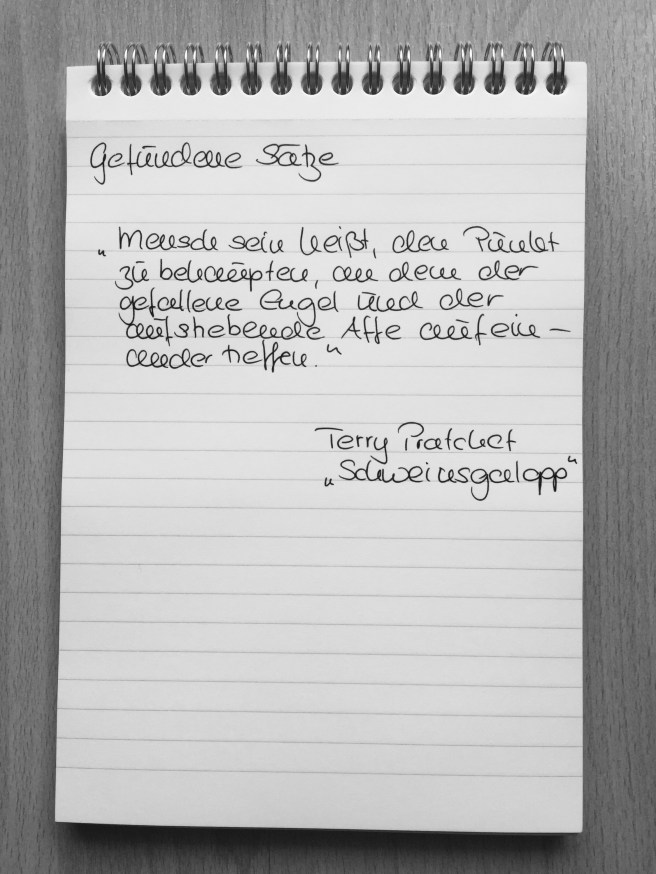 Gefundene Sätze
„Mensch sein heißt, den Punkt
zu behaupten, an dem der
gefallene Engel und der
aufstrebende Affe aufein-
ander treffen."
Terry Pratchet
„Schweinsgalopp"